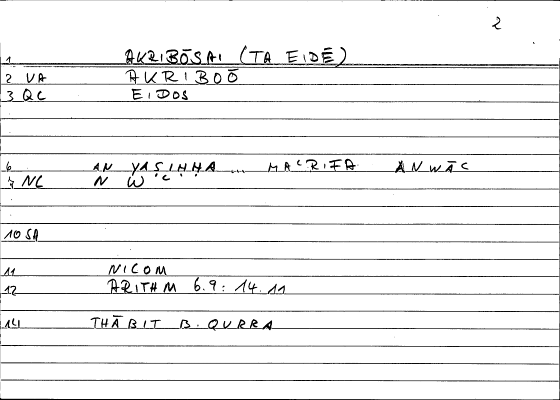 2
1 AKRIBŌSAI (TA EIDĒ)
2 VA AKRIBOŌ
3 QC EIDOS
6 AN YAṢIḤḤA ... MAʿRIFA ANWĀʿ
7 NC N W ʿ
10 SA
11 NICOM
12 ARITHM 6.9: 14.11
14 THĀBIT B. QURRA